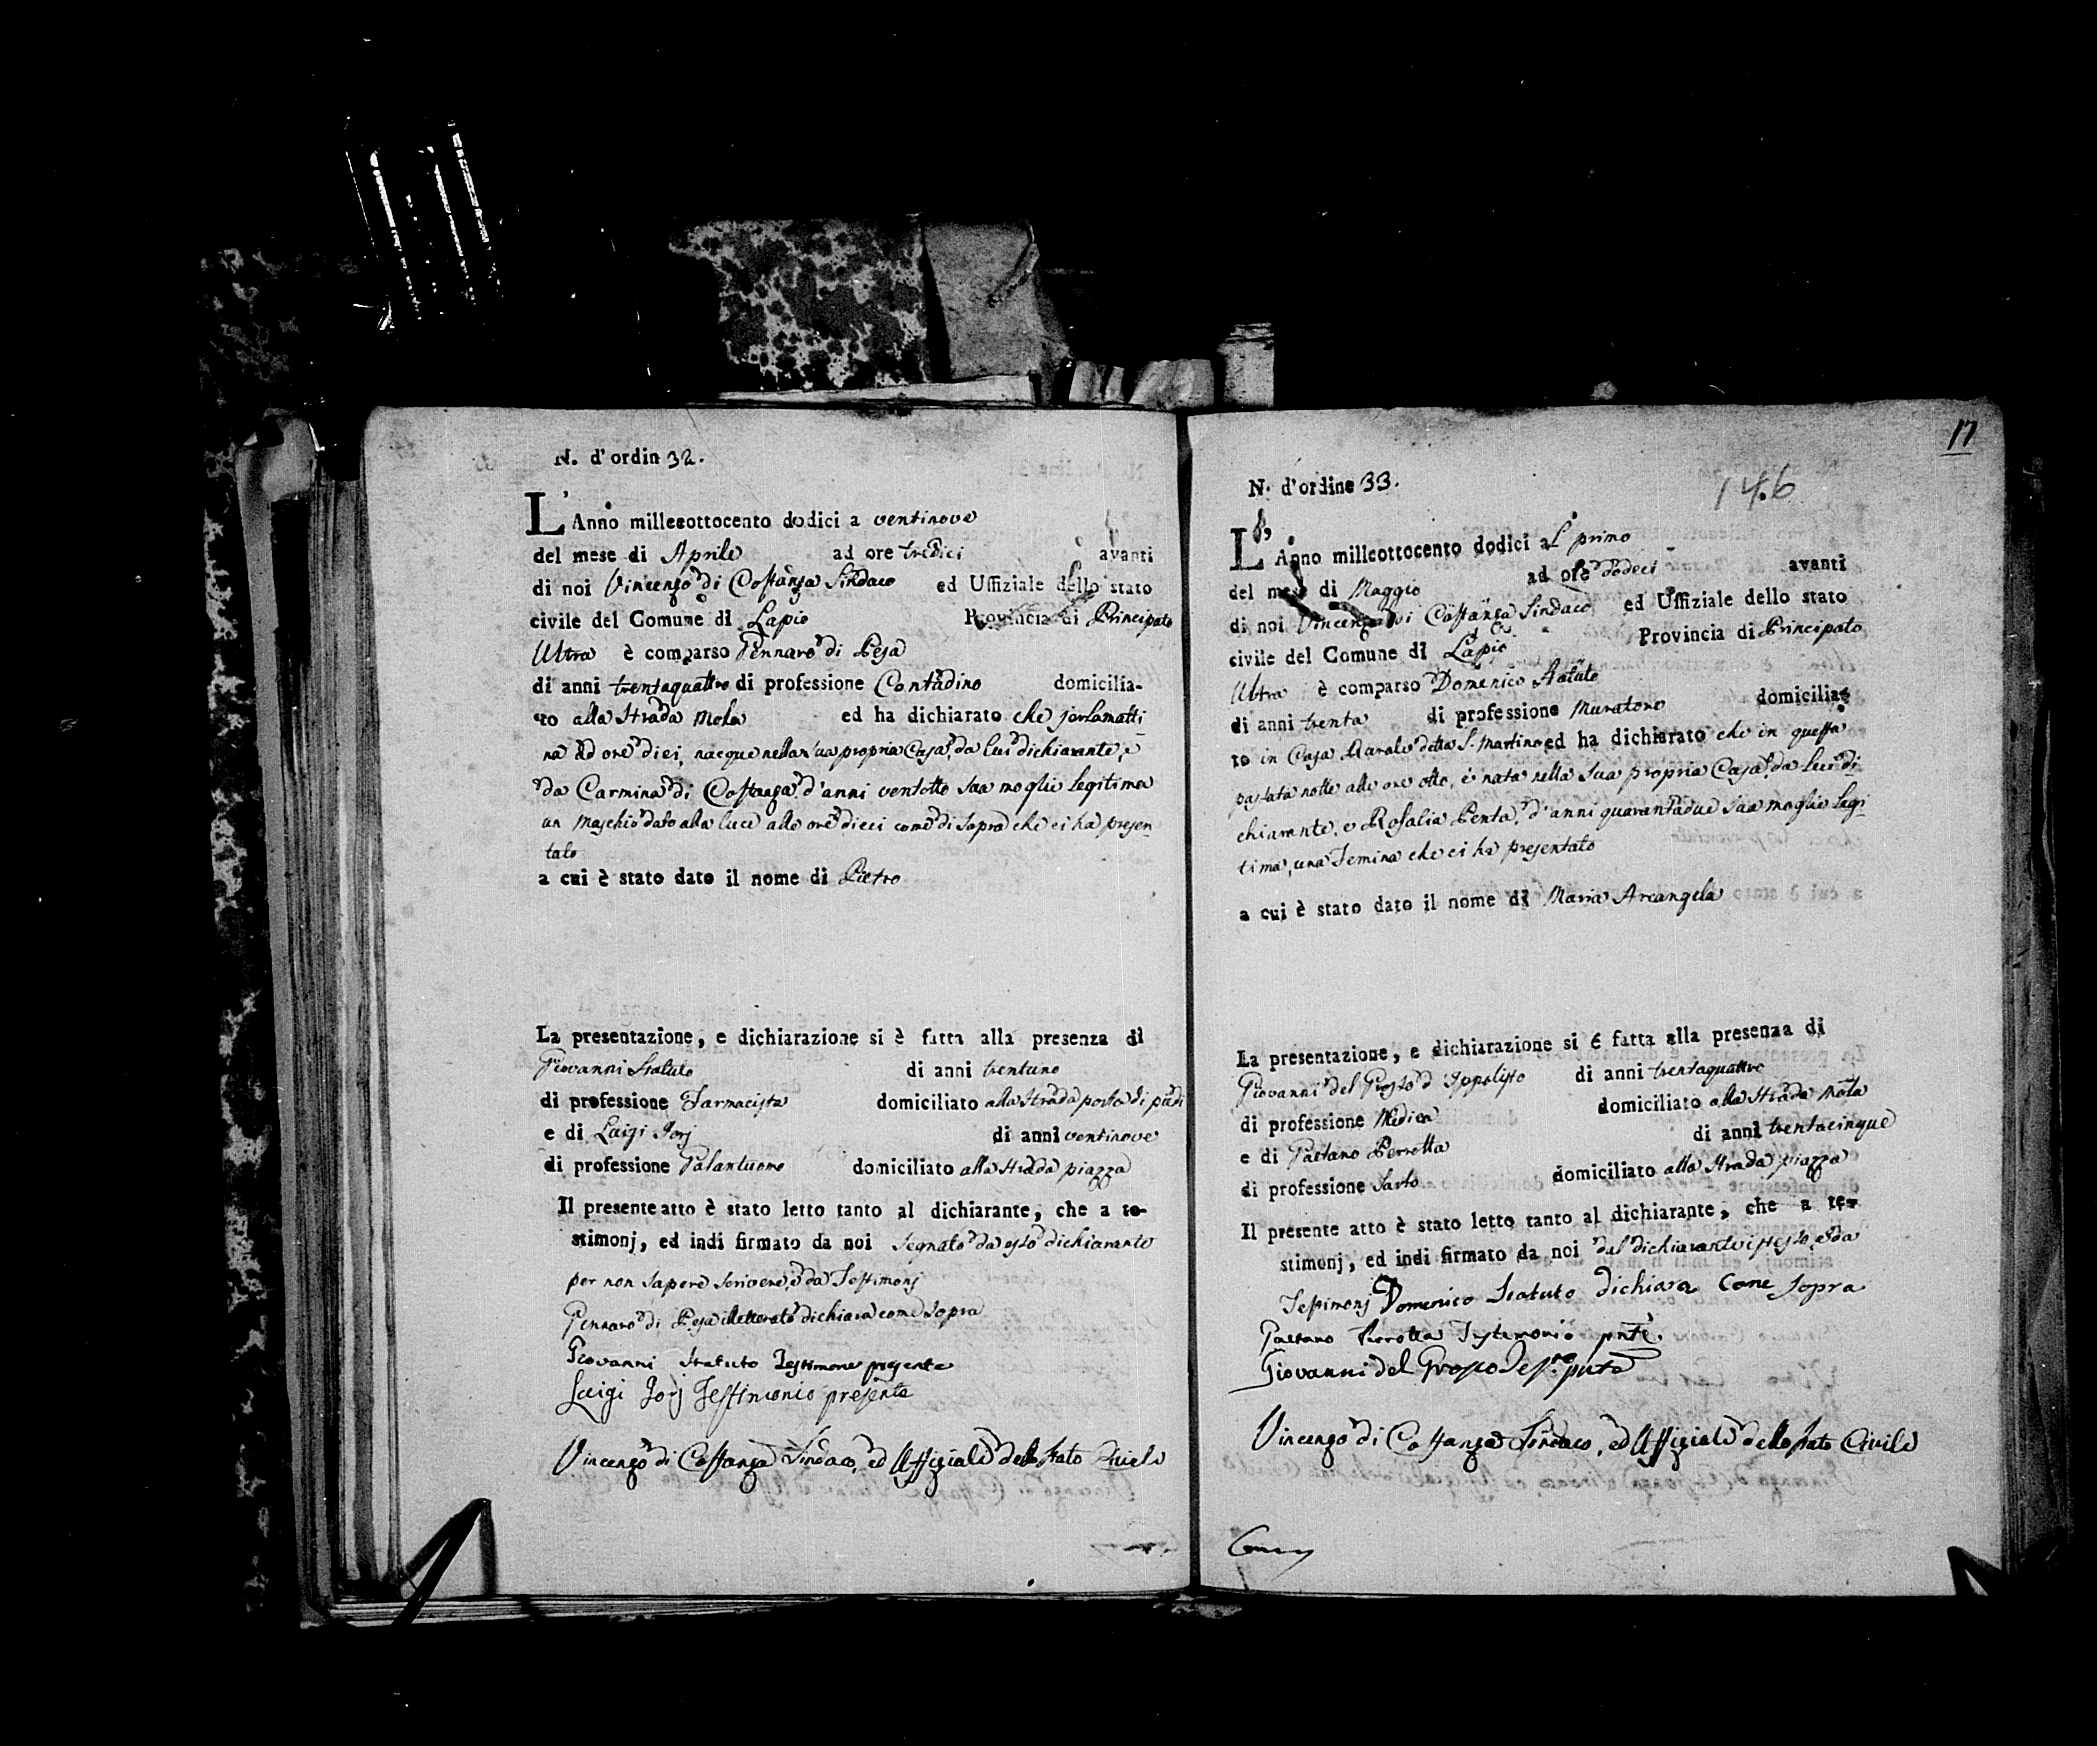 N. d'ordin 32.
L'Anno milleottocento dodici a ventinove
del mese di Aprile ad ore tredici avanti
di noi Vincenzo di Costanza Sindaco ed Uffiziale dello stato
civile del Comune di Lapio Provincia di Principato
Ultra è comparso Gennaro di Pesa
di anni trentaquattro di professione Contadino domicilia-
to alla Strada ed ha dichiarato che jerlamatti
na ad ore dieci, nacque nella sua propria Casa, da lui dichiarante, e
da Carmina di Costanza d'anni ventotto sua moglie legitima
un Maschio dato alla luce alle ore dieci come di sopra che ci ha presen
tato
a cui è stato dato il nome di Pietro
La presentazione, e dichiarazione si è fatta alla presenza di
Giovanni Statuto di anni trentuno
di professione Farmacista domiciliato alla Strada porta di piedi
e di Luigi Jorj di anni ventinove
di professione Galantuomo domiciliato alla Strada piazza
Il presente atto è stato letto tanto al dichiarante, che a te-
stimonj, ed indi firmato da noi segnato da esso dichiarante
per non sapere scrivere, e da Testimonj
Gennaro di Pesa illetterato dichiara come sopra
Giovanni Statuto Testimone presente
Luigi Jorj Testimonio presente
Vincenzo di Costanza Sindaco, ed Uffiziale dello Stato Civile
17
146
N. d'ordine 33.
L'Anno milleottocento dodici al primo
del mese di Maggio ad ore dodeci avanti
di noi Vincenzo di Costanza Sindaco ed Uffiziale dello stato
civile del Comune di Lapio Provincia di Principato
Ultra è comparso Domenico Statuto
di anni trenta di professione Muratore domicilia-
to in Casa Rurale detta S. Martino ed ha dichiarato che in questa
passata notte alle ore otto, è nata nella sua propria Casa da lui di
chiarante, e Rosalia Penta, d'anni quarantadue sua moglie legi
tima, una Femina che ci ha presentato
a cui è stato dato il nome di Maria Arcangela
La presentazione, e dichiarazione si è fatta alla presenza di
Giovanni del Grosso d'Ippolisto di anni trentaquattro
di professione Medico domiciliato alla Strada
e di Gaetano Perrotta di anni trentacinque
di professione Sarto domiciliato alla Strada piazza
Il presente atto è stato letto tanto al dichiarante, che a te-
stimonj, ed indi firmato da noi dal dichiarante istesso, e da
Testimonj Domenico Statuto dichiara Come Sopra
Gaetano Perrotta Testimonio pnte.
Giovanni del Grosso
Vincenzo di Costanza Sindaco, ed Uffiziale dello Stato Civile